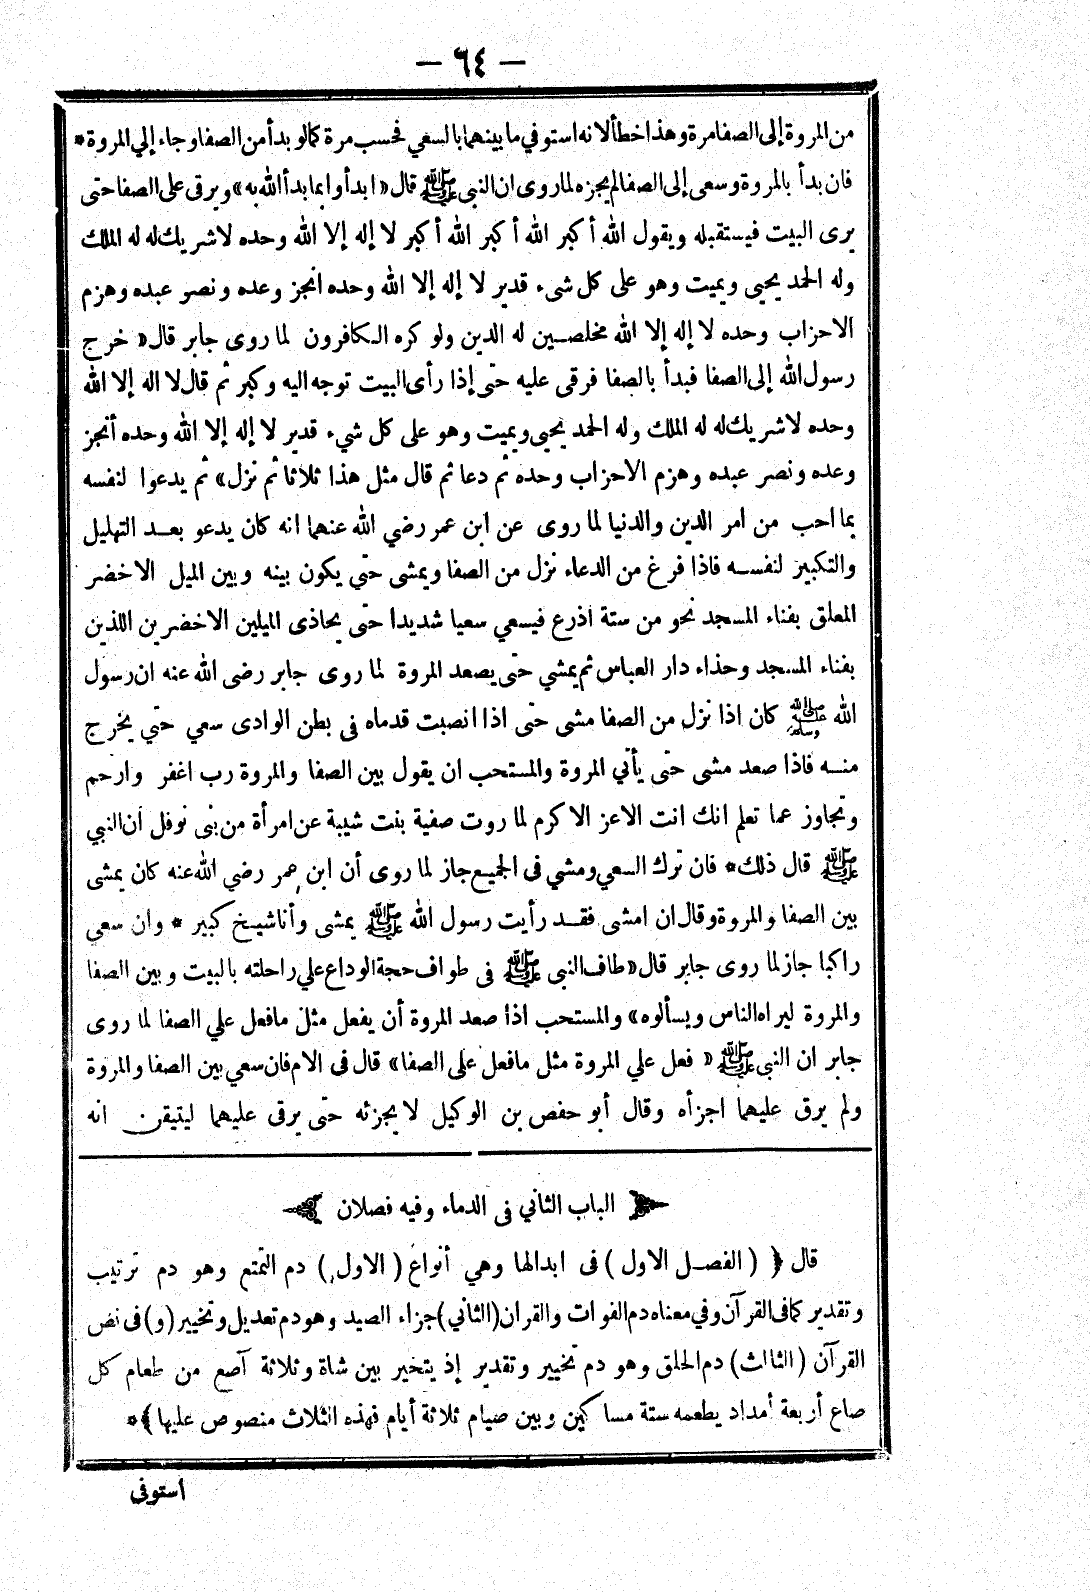 — ٦٤ —
من المروة إلى الصفا مرة وهذا خطأ لانه استوفي ما بينهما بالسعي فحسب مرة كما لو بدأ من الصفا وجاء إلي المروة *
فان بدأ بالمروة وسعى إلى الصفا لم يجزه لما روى ان النبي ﷺ قال « ابدأوا بما بدأ الله به » ويرقى على الصفا حتى
يرى البيت فيستقبله ويقول الله أكبر الله أكبر الله أكبر لا إله إلا الله وحده لا شريك له له الملك
وله الحمد يحيى ويميت وهو على كل شىء قدير لا إله إلا الله وحده انجز وعده ونصر عبده وهزم
الاحزاب وحده لا إله إلا الله مخلصين له الدين ولو كره الكافرون لما روى جابر قال « خرج
رسول الله إلى الصفا فبدأ بالصفا فرقى عليه حتى إذا رأى البيت توجه اليه وكبر ثم قال لا اله إلا الله
وحده لا شريك له له الملك وله الحمد يحيى ويميت وهو على كل شيء قدير لا إله إلا الله وحده أنجز
وعده ونصر عبده وهزم الاحزاب وحده ثم دعا ثم قال مثل هذا ثلاثا ثم نزل » ثم يدعوا لنفسه
بما احب من امر الدين والدنيا لما روى عن ابن عمر رضي الله عنهما انه كان يدعو بعد التهليل
والتكبير لنفسه فاذا فرغ من الدعاء نزل من الصفا ويمشى حتي يكون بينه وبين الميل الاخضر
المعلق بفناء المسجد نحو من ستة أذرع فيسعي سعيا شديدا حتى يحاذى الميلين الاخضرين اللذين
بفناء المسجد وحذاء دار العباس ثم يمشي حتى يصعد المروة لما روى جابر رضى الله عنه ان رسول
الله ﷺ كان اذا نزل من الصفا مشى حتى اذا انصبت قدماه فى بطن الوادى سعي حتي يخرج
منه فاذا صعد مشى حتى يأتي المروة والمستحب ان يقول بين الصفا والمروة رب اغفر وارحم
وتجاوز عما تعلم انك انت الاعز الاكرم لما روت صفية بنت شيبة عن امرأة من بنى نوفل ان النبي
ﷺ قال ذلك * فان ترك السعي ومشي فى الجميع جاز لما روى أن ابن عمر رضي الله عنه كان يمشى
بين الصفا والمروة وقال ان امشى فقد رأيت رسول الله ﷺ يمشى وأنا شيخ كبير * وان سعي
راكبا جاز لما روى جابر قال « طاف النبى ﷺ فى طواف حجة الوداع علي راحلته بالبيت وبين الصفا
والمروة ليراه الناس ويسألوه » والمستحب اذا صعد المروة أن يفعل مثل ما فعل علي الصفا لما روى
جابر ان النبى ﷺ « فعل علي المروة مثل ما فعل على الصفا » قال فى الام فان سعي بين الصفا والمروة
ولم يرق عليهما اجزأه وقال أبو حفص بن الوكيل لا يجزئه حتى يرقى عليهما ليتيقن انه
الباب الثاني فى الدماء وفيه فصلان
قال ﴿ ( الفصل الاول ) فى ابدالها وهي أنواع ( الاول ) دم التمتع وهو دم ترتيب
وتقدير كما فى القرآن وفي معناه دم الفوات والقران ( الثاني ) جزاء الصيد وهو دم تعديل وتخيير ( و ) فى نص
القرآن ( الثالث ) دم الحلق وهو دم تخيير وتقدير إذ يتخير بين شاة وثلاثة آصع من طعام كل
صاع أربعة أمداد يطعمه ستة مساكين وبين صيام ثلاثة أيام فهذه الثلاث منصوص عليها ﴾ *
استوفى